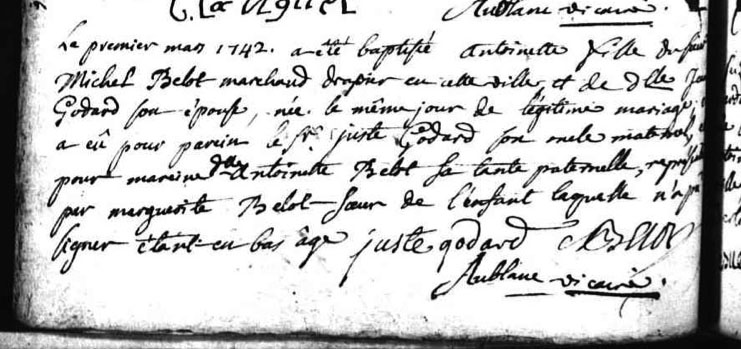 Aublane vicaire
Le premier mars 1742. a été baptisée Antoinette fille du sieur
Michel Belot marchand drapier en cette ville, et de dlle
Godard son épouse, née le même jour de légitime mariage,
a eû pour parein le sr. juste Godard son oncle maternel,
pour mareine dlle Antoinette Belot sa tante paternelle,
par marguerite Belot sœur de l'enfant laquelle n'a pu
signer étant en bas âge juste godard Belot
Aublane vicaire.